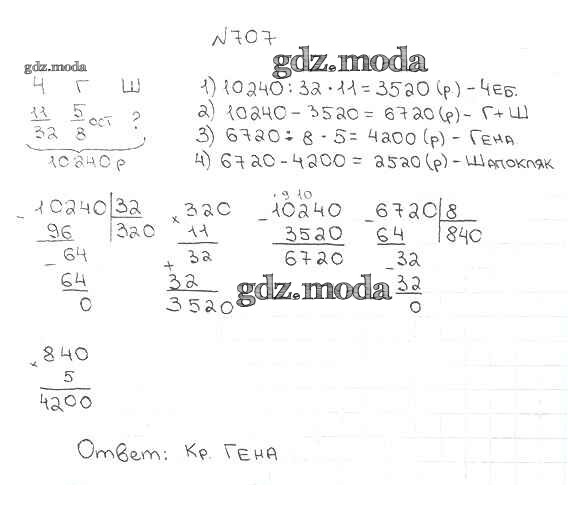 №707
gdz.moda
gdz.moda
Ч Г Ш
11/32 5/8 ост ?
10240 р
1) 10240 : 32 · 11 = 3520 (р) - ЧЕБ.
2) 10240 - 3520 = 6720 (р) - Г + Ш
3) 6720 : 8 · 5 = 4200 (р) - ГЕНА
4) 6720 - 4200 = 2520 (р) - ШАПОКЛЯК
- 10240 | 32
96 320
- 64
64
0
× 320
11
+ 32
32
3520
9 10
- 10240
3520
6720
- 6720 | 8
64 840
- 32
32
0
gdz.moda
× 840
5
4200
Ответ: Кр. ГЕНА